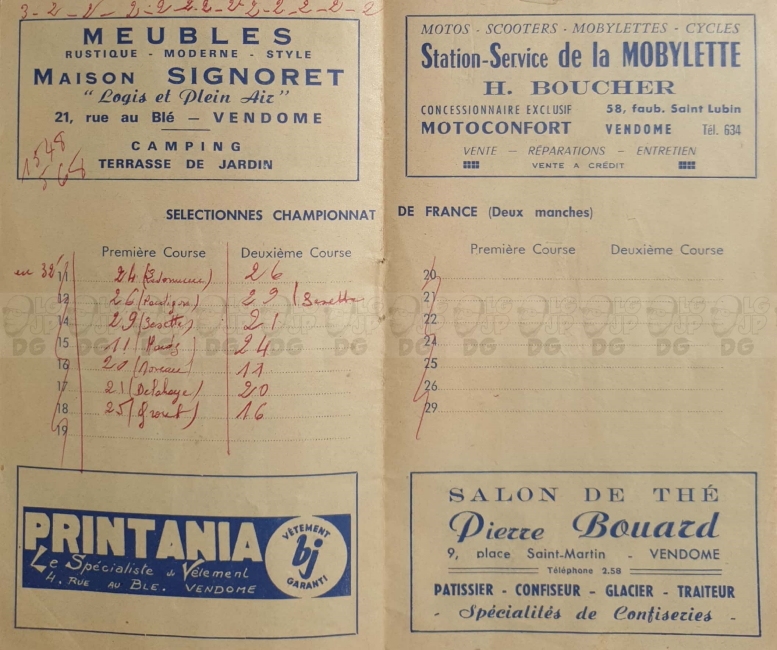 3-2-2-2-2-2.2-2-2-2-2-2-2
MEUBLES
RUSTIQUE - MODERNE - STYLE
MAISON SIGNORET
"Logis et Plein Air"
21, rue au Blé — VENDOME
CAMPING
TERRASSE DE JARDIN
1548
564
MOTOS - SCOOTERS - MOBYLETTES - CYCLES
Station-Service de la MOBYLETTE
H. BOUCHER
CONCESSIONNAIRE EXCLUSIF 58, faub. Saint Lubin
MOTOCONFORT VENDOME Tél. 634
VENTE — RÉPARATIONS — ENTRETIEN
VENTE A CRÉDIT
SELECTIONNES CHAMPIONNAT DE FRANCE (Deux manches)
Première Course Deuxième Course
en 32' 11 24 26
12 26 29
14 29 21
15 11 24
16 20 (Moreau) 11
17 21 (Delahaye) 20
18 25 16
19
Première Course Deuxième Course
20
21
22
24
25
26
29
PRINTANIA
Le Spécialiste du Vêtement
4, RUE AU BLE. VENDOME
VÊTEMENT
bj
GARANTI
SALON DE THÉ
Pierre Bouard
9, place Saint-Martin - VENDOME
Téléphone 2.58
PATISSIER - CONFISEUR - GLACIER - TRAITEUR
- Spécialités de Confiseries -